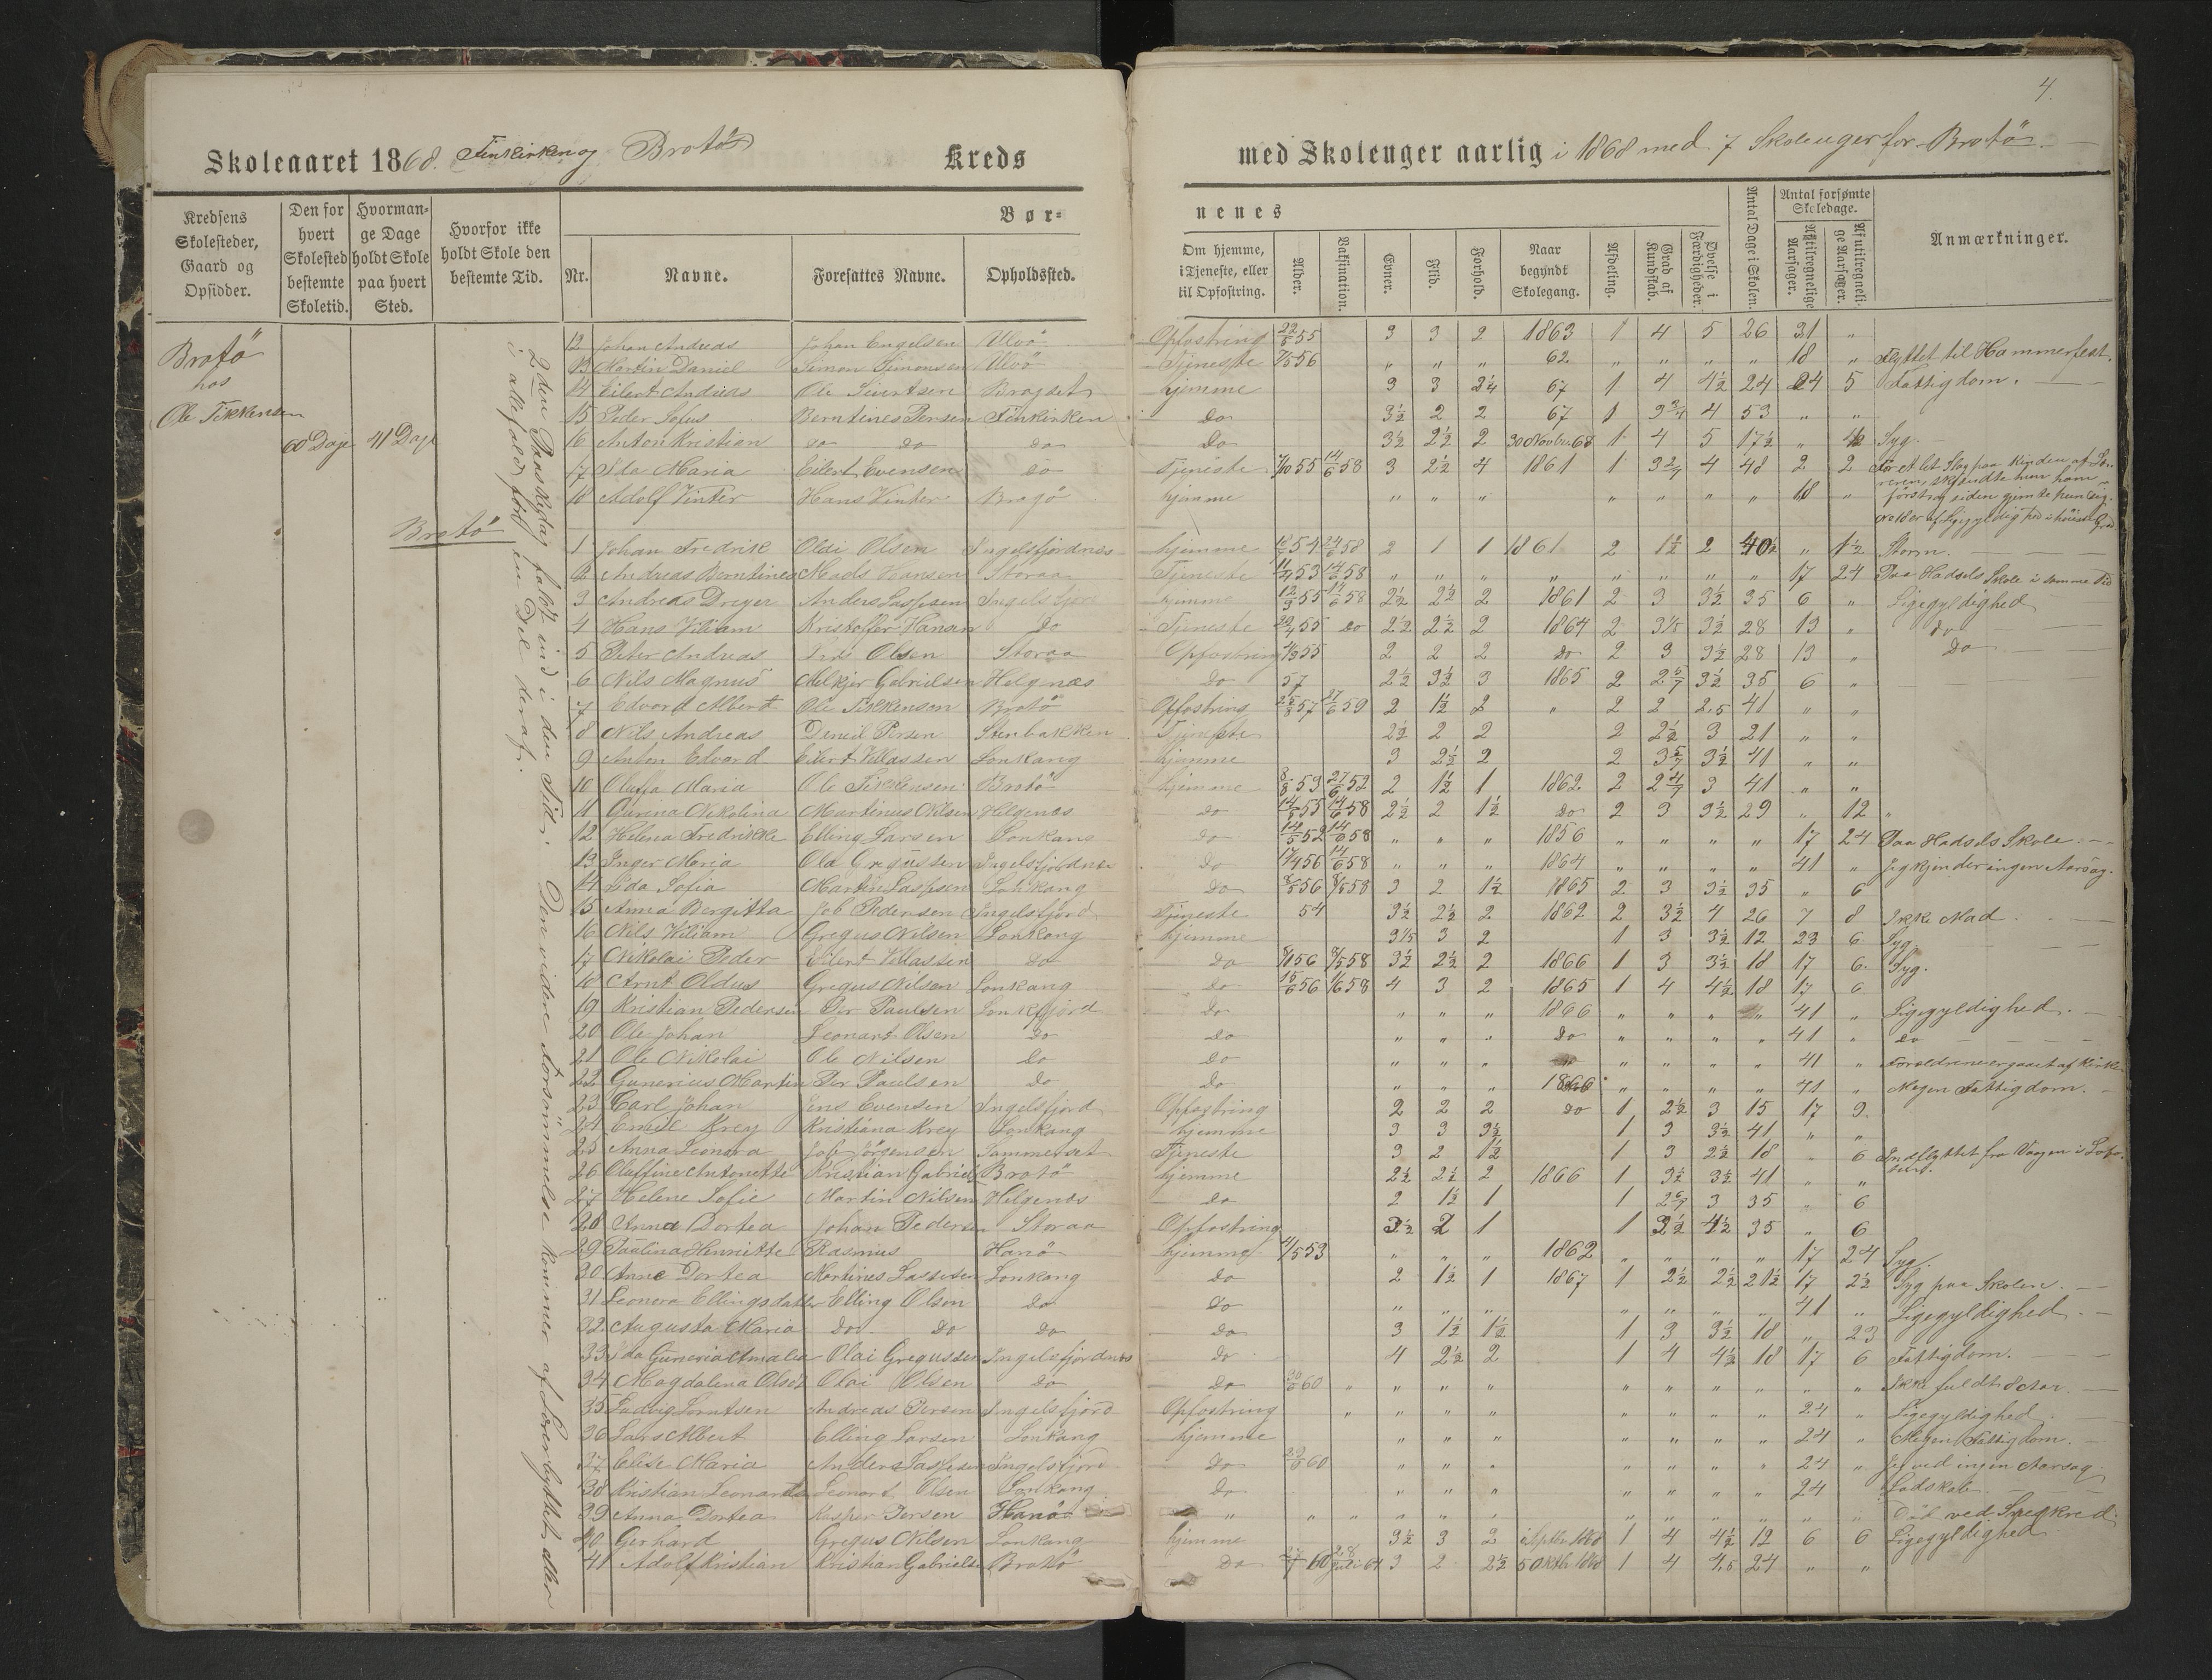 4.
Skoleaaret 1868. Finkirken og Brotö Kreds med Skolenger aarlig i 1868 med 7 Skolenger for Brotö.
Kredsens Skolesteder, Gaard og Opsidder.
Den for hvert Skolested bestemte Skoletid.
Hvormange Dage holdt Skole paa hvert Sted.
Hvorfor ikke holdt Skole den bestemte Tid.
Børnenes
Nr. Navne. Foresattes Navne. Opholdssted. Om hjemme, i Tjeneste, eller til Opfostring. Alder. Vaksination. Evner. Flid. Forhold. Naar begyndt Skolegang. Afdeling. Grad af Kundskab. Øvelse i Færdigheder. Antal Dage i Skolen. Antal forsømte Skoledage. Af tilregnelige Aarsager. Af utilregnelige Aarsager. Anmærkninger.
Brotö
hos
Ole Tikkensen
60 Dage 41 Dage
2den Paaskedag faldt ind i den Tid. Den videre Forsömmelse kommer af Sveerbyttet eller
i allefald for en Del deraf.
12 Johan Andreas Johan Engelsen Ulvö Opfostring 55 3 3 2 1863 1 4 5 26 31 "
13 Martin Daniel Simon Simonsen Ulvö Tjeneste 56 " " " 62 " " " " 18 " Flyttet til Hammerfest.
14 Eilert Andreas Ole Sivertsen Brajset hjemme 3 3 2¼ 67 1 4 4½ 24 24 5 Fattigdom.
15 Peder Sofus Berntines Persen Finkirken Do 3½ 2 2 67 1 3¾ 4 53 " "
16 Anton Kristian do do do Do 3½ 2½ 2 30 Novbr. 68 1 4 5 17½ " 42 Syg.
17 Ida Maria Eilert Evensen do Tjeneste 55 14/6 58 3 2½ 4 1861 1 4 48 2 2 For et let Slag paa Kinden af
18 Adolf Vinter Hans Vinter Brogö hjemme " " " " " " " 18 "
Brotö
1 Johan Fredrik Oldi Olsen Ingelsfjordnes hjemme 54 24/6 58 2 1 1 1861 2 1½ 2 40½ " 1½ Storm.
2 Andreas Berntines Mads Hansen Storaa Tjeneste 11/4 53 14/6 58 " " " " " " " " 17 24 Paa Hadsels Skole i somme Tid
3 Andreas Dreyer Anders Jaspesen Ingelsfjord hjemme 12/9 55 14/6 58 2½ 2½ 2 1861 2 3 3½ 35 6 " Ligegyldighed
4 Hans Viliam Kristoffer Hansen Do Tjeneste 55 Do 2½ 2½ 2 1864 2 3½ 28 13 " do
5 Peter Andreas Olsen Storaa Opfostring 55 2 2 2 Do 2 3 3½ 28 13 " Do
6 Nils Magnus Melkjer Gabrielsen Helgnæs Do 57 2½ 3½ 3 1865 2 3½ 35 6 "
7 Edvard Albert Ole Tikkensen Brotö Opfostring 57 27/6 59 2 1½ 2 " 2 2 2,5 41 " "
8 Nils Andreas Daniel Persen Stenbakken Tjeneste 2½ 2 2 2 2½ 3 21 " "
9 Anton Edvard Eilert Villassen Lonkang hjemme 3 2½ 2 2 3½ 41 " "
10 Oluffa Maria Ole Tikkensen Brotö hjemme 8/8 53 27/6 52 2 1½ 1 1862 2 3 41 " "
11 Gurina Nikolina Martinus Nilsen Helgenes do 14/6 55 14/6 58 2½ 2 1½ Do 2 3 3½ 29 " 12 "
12 Helena Fredrikke Elling Larsen Lonkang Do 14/5 52 14/6 58 " " " 1856 " " " " 17 24 Paa Hadsels Skole.
13 Inger Maria Ola Gregussen Ingelsfjordnes Do 17/4 56 14/6 58 " " " 1864 " " " " 41 " Jeg kjender ingen Aarsag.
14 Lida Sofia Martin Jaspsen Lonkang Do 56 58 3 2 1½ 1865 2 3 3½ 35 " 6
15 Anna Bergitta Job Pedersen Ingelsfjord Tjeneste 54 3½ 2½ 2 1862 2 3½ 4 26 7 8 Ikke Mad.
16 Nils Wiliam Gregus Nilsen Lonkang hjemme 3 2 1 3 3½ 12 23 6 Syg
17 Nikolai Peder Eilert Villassen do Do 56 58 3½ 2½ 2 1866 1 3 3½ 18 17 6 Syg.
18 Arnt Oldus Gregus Nilsen Lonkang Do 15/6 56 58 4 3 2 1865 1 4 4½ 18 17 6
19 Kristian Pedersen Per Paulsen Lonkfjord Do " " " 1866 " " " " 41 " Ligegyldighed.
20 Ole Johan Leonart Olsen Do Do " " " Do " " " " 41 " do
21 Ole Nikolai Ole Nilsen Do Do " " " " " " " 41 " Foreldrene ergaaet af Kirke
22 Gunerius Martin Per Paulsen Do Do " " " 1866 " " " " 41 " Megen Fattigdom.
23 Carl Johan Jens Evensen Ingelsfjord Opfostring 2 2 2 do 1 2½ 3 15 17 9
24 Emil Krey Kristiana Krey Lonkang hjemme 3 3 3½ 1 3 3½ 41 " "
25 Anna Leonora Job Jörgensen Sammerset Tjeneste 3 2 1½ 1 3 2½ 18 " 6 Indflyttet fra Vaagen i Lofo-
26 Oluffine Antonette Kristian Gabriels Brotö hjemme 2½ 2½ 2 1866 1 3½ 3½ 41 " "
27 Helene Sofie Martin Nilsen Helgenes do 2 1½ 1 1 3 35 " 6
28 Anna Dortea Johan Pedersen Storaa Opfostring 3½ 2 1 1 3½ 4½ 35 " 6
29 Paulina Henriette Rasmus Hanö hjemme 53 " " " 1862 " " " " 17 24 Syg.
30 Anne Dortea Martines Jaspesen Lonkang do 2 1½ 1 1867 1 2½ 2½ 21½ 17 2½ Syg paa Skolen.
31 Leonora Ellingsdatter Elling Olsen do Do " " " " " " " 41 " Ligegyldighed.
32. Augusta Maria Do Do Do Do 3 1½ 1½ 1 3 3½ 18 " 23
33 Ida Guneria Amalia Olai Gregussen Ingelsfjordnes Do 4 2½ 2 1 4 4½ 18 17 6 Fattigdom.
34 Magdalena Olsdt Olai Olsen Do Do 60 " " " " " " " " " " Ikke fuldt 8 Aar.
35 Ludvig Berntsen Andreas Persen Ingelsfjord Opfostring " " " " " " " " 24 " Ligegyldighed
36 Lars Albert Elling Larsen Lonkang hjemme " " " " " " " 24 " Megen Fattigdom.
37 Elise Maria Anders Jaspesen Ingelsfjord Do 60 " " " " " " " 24 " Jeg ved ingen Aarsag
38 Kristian Leonard Leonart Olsen Lonkang Do " " " " " " " 24 Ladskab
39 Anna Dortea Kasper Jersen Hanö " " " " " " " " " " " " Död ved Sneskred
40 Gerhard Gregus Nilsen Lonkang hjemme 3½ 3 2 1868 1 4 4½ 12 6 6 Ligegyldighed
41 Adolf Kristian Kristian Gabrielsen Brotö Do 60 28 Juli 64 3 2 2½ 5 Oktbr 1868 1 4 4,5 24 " "